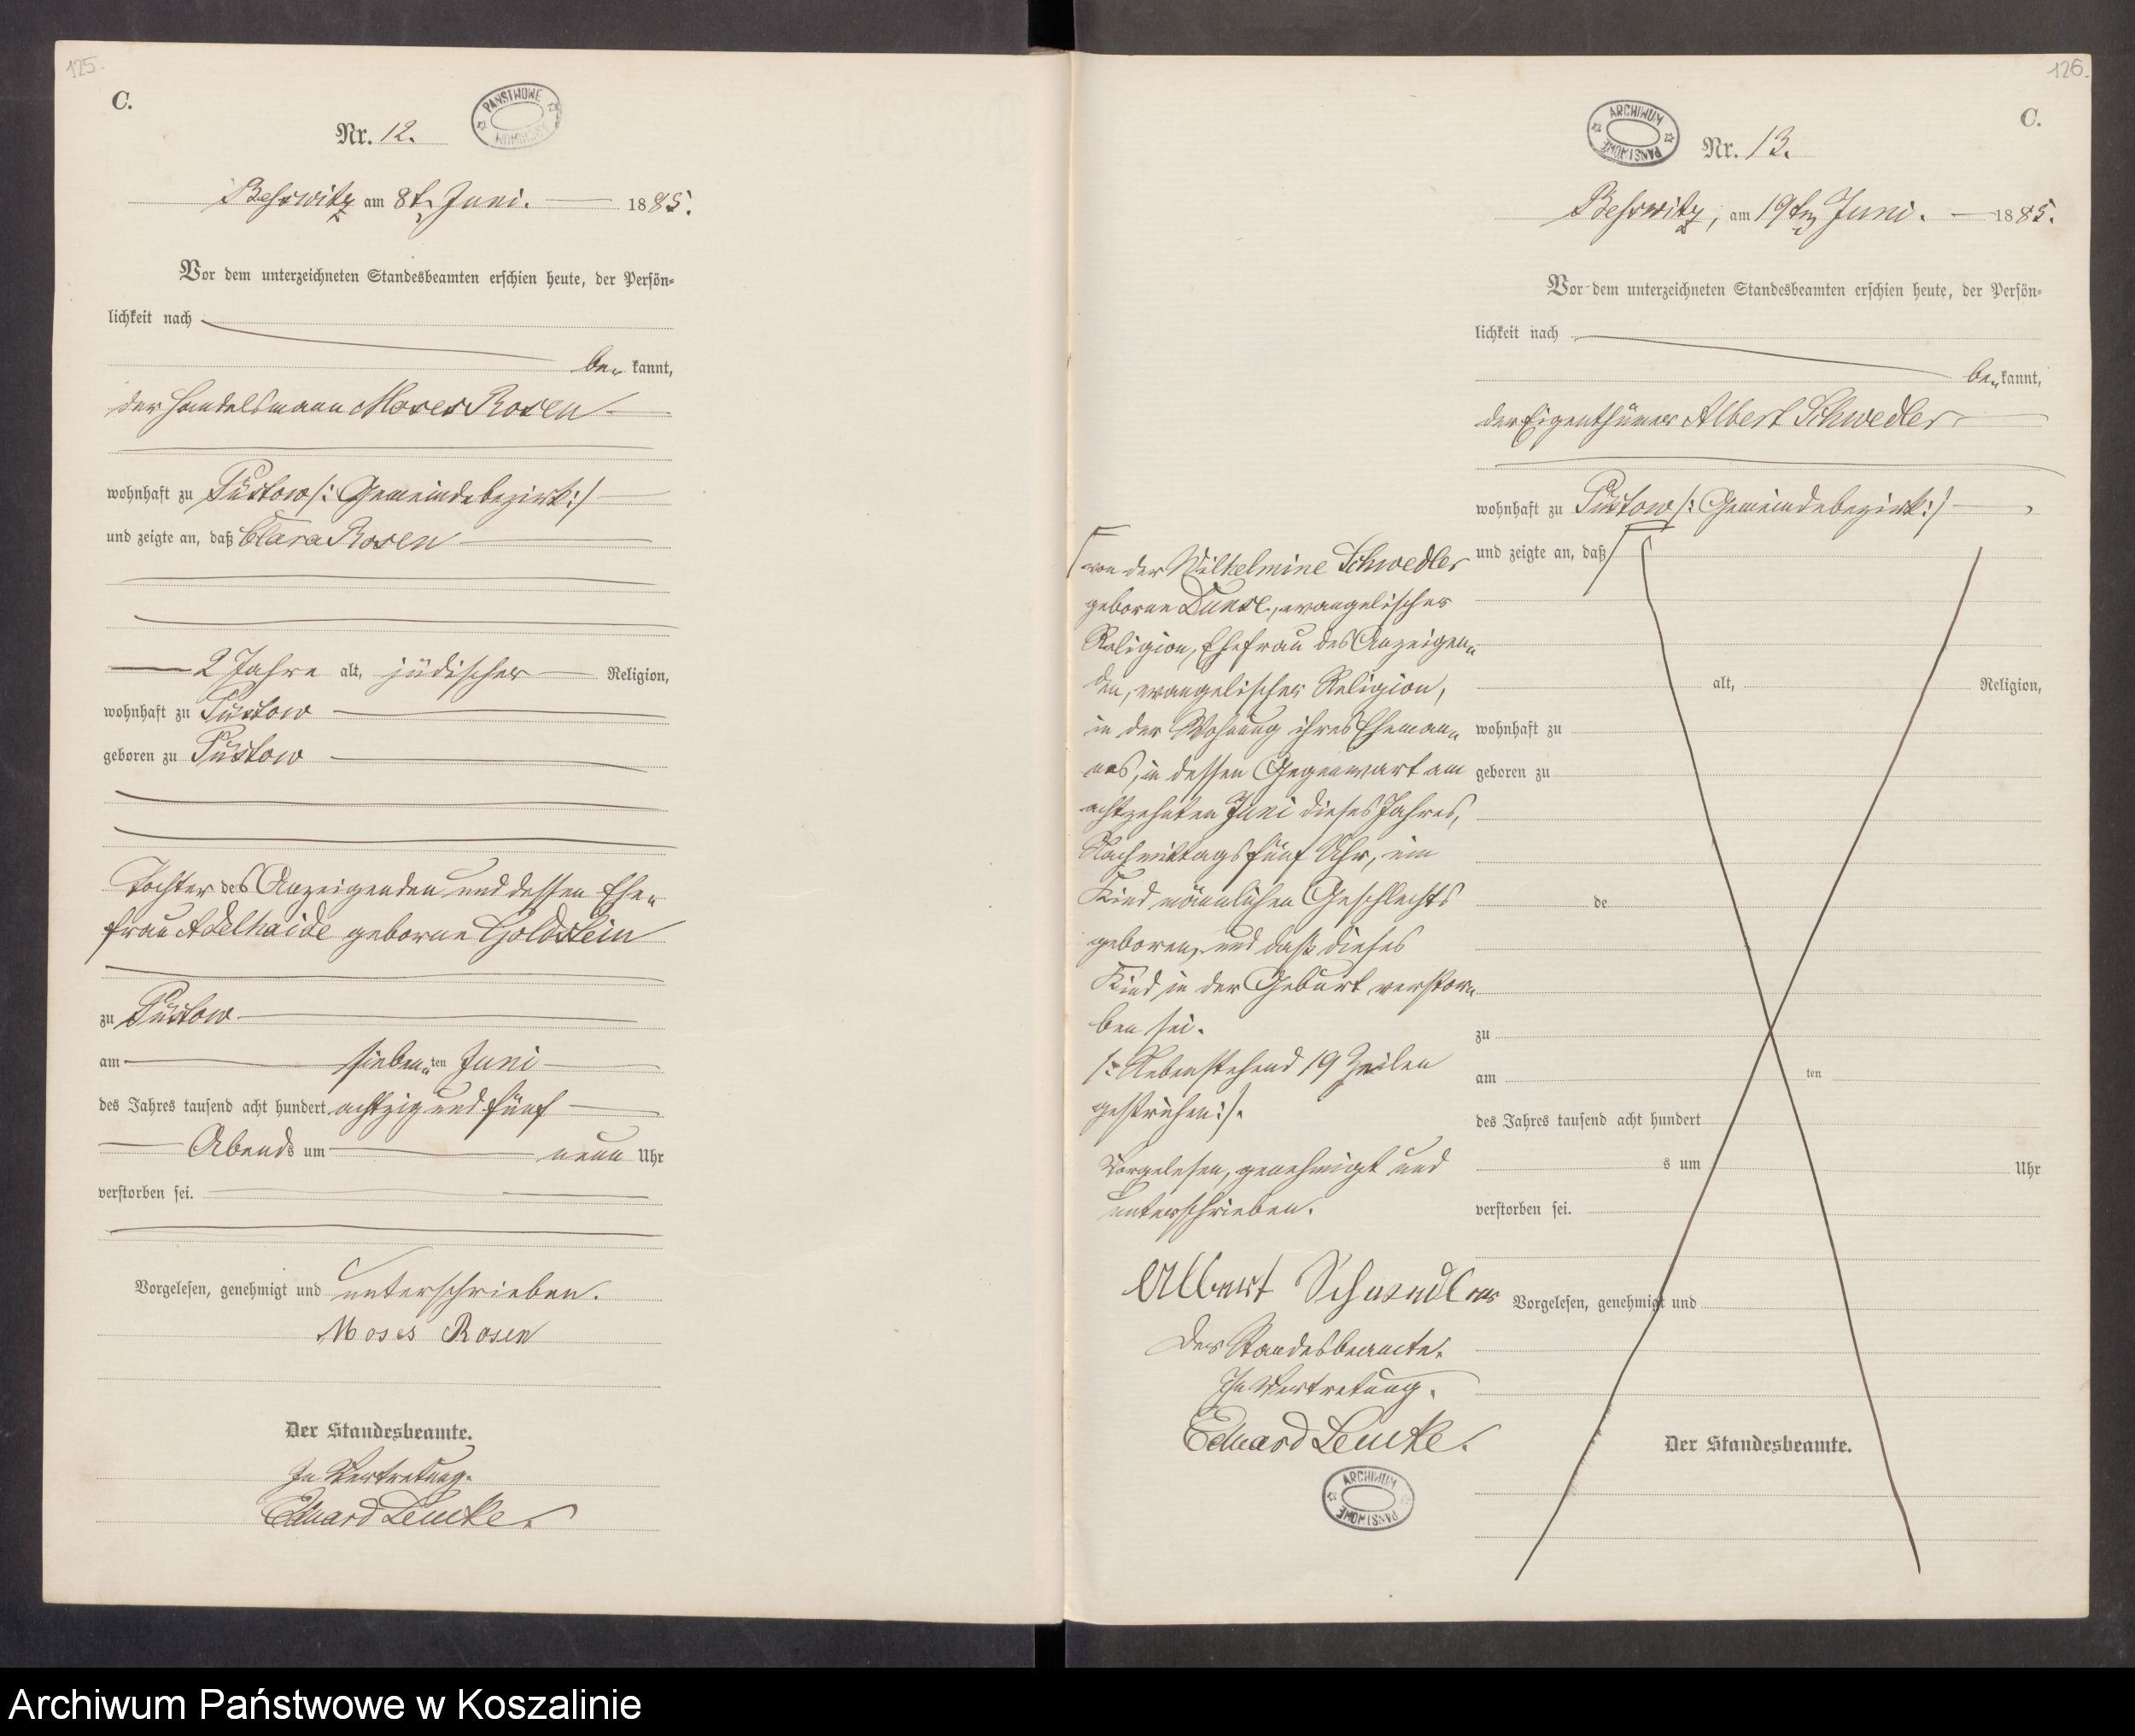 125.
C.
PAŃSTWOWE ARCHIWUM
Nr. 12.
Beßwitz am 8t. Juni. 1885.
Vor dem unterzeichneten Standesbeamten erschien heute, der Persön-
lichkeit nach
be- kannt,
der Handelsmann Moses Rosen
wohnhaft zu Püstow /: Gemeindebezirk :/
und zeigte an, daß Clara Rosen
2 Jahre alt, jüdischer Religion,
wohnhaft zu Püstow
geboren zu Püstow
Tochter des Anzeigenden und dessen Ehe-
frau Adelhaide geborne Goldstein
zu Püstow
am sieben-ten Juni
des Jahres tausend acht hundert achtzig und fünf
Abends um neun Uhr
verstorben sei.
Vorgelesen, genehmigt und unterschrieben.
Moses Rosen
Der Standesbeamte.
In Vertretung.
Eduard Lemke.
126.
C.
ARCHIWUM PAŃSTWOWE
Nr. 13.
Beßwitz, am 19ten Juni. 1885.
Vor dem unterzeichneten Standesbeamten erschien heute, der Persön-
lichkeit nach
be- kannt,
der Eigenthümer Albert Schwedler
wohnhaft zu Püstow /: Gemeindebezirk :/
und zeigte an, daß
von der Wilhelmine Schwedler
geborne Dunse, evangelischer
Religion, Ehefrau des Anzeigen-
den, evangelischer Religion,
in der Wohnung ihres Eheman-
nes, in dessen Gegenwart am
achtzehnten Juni dieses Jahres,
Nachmittags fünf Uhr, ein
Kind männlichen Geschlechts
geboren, und daß dieses
Kind in der Geburt verstor-
ben sei.
/: Nebenstehend 19 Zeilen
gestrichen :/.
Vorgelesen, genehmigt und
unterschrieben.
Albert Schwedler
Der Standesbeamte.
In Vertretung.
Eduard Lemke.
ARCHIWUM PAŃSTWOWE
alt, Religion,
wohnhaft zu
geboren zu
de
zu
am ten
des Jahres tausend acht hundert
s um Uhr
verstorben sei.
Vorgelesen, genehmigt und
Der Standesbeamte.
Archiwum Państwowe w Koszalinie